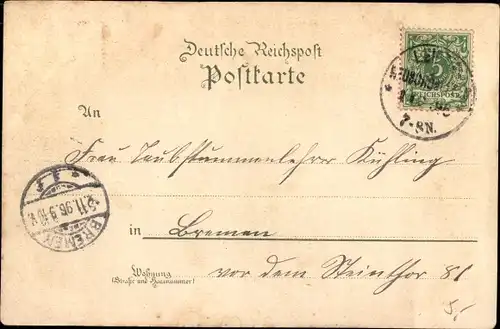 Deutsche Reichspost
Postkarte
5
REICHSPOST
7-8N.
An
Frau Taubstummenlehrer Kühling
in Bremen
Wohnung
(Straße und Hausnummer)
vor dem Steinthor 81
BREMEN
11.96.9-10V.
5,-